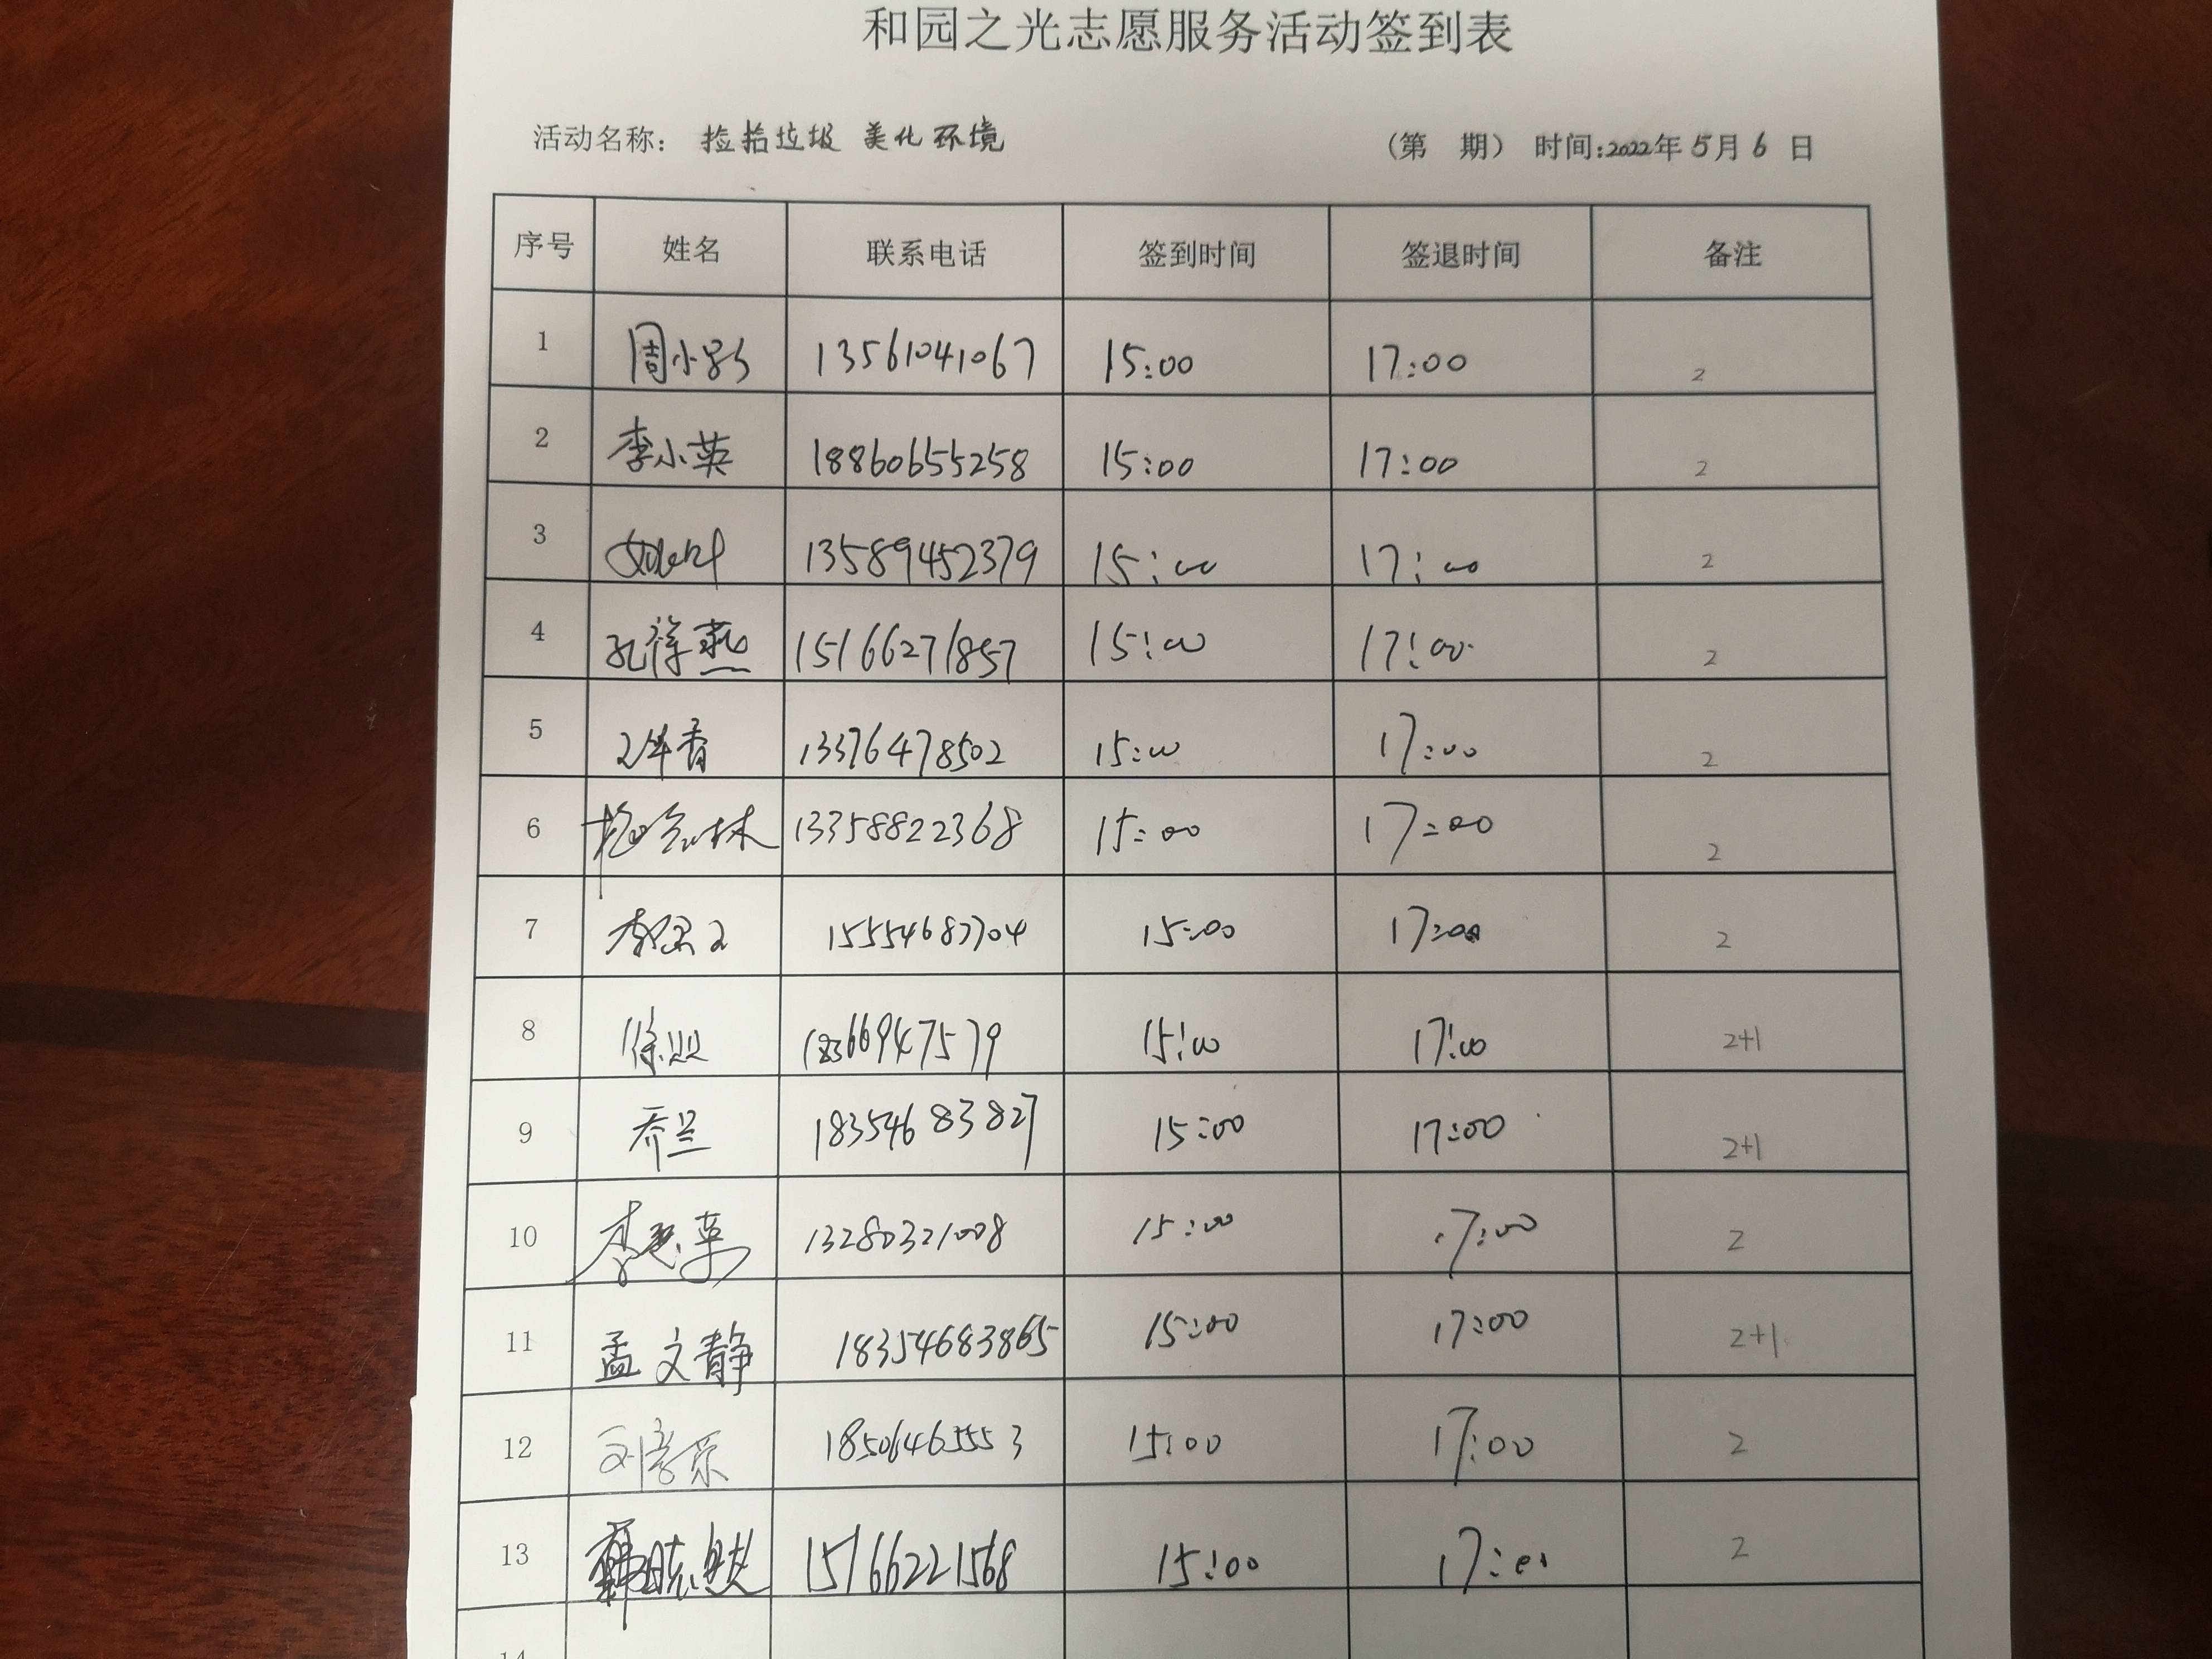 和园之光志愿服务活动签到表
活动名称: 捡拾垃圾 美化环境 (第 期) 时间:2022年5月6日
序号 姓名 联系电话 签到时间 签退时间 备注
1 周小彤 13561041067 15:00 17:00 2
2 李小英 18860655258 15:00 17:00 2
3 13589452379 15:00 17:00 2
4 孔祥燕 15166271857 15:00 17:00 2
5 13376478502 15:00 17:00 2
6 13358822368 15:00 17:00 2
7 15554687704 15:00 17:00 2
8 18366947579 15:00 17:00 2+1
9 乔兰 18354683827 15:00 17:00 2+1
10 13280321008 15:00 17:00 2
11 孟文静 18354683865 15:00 17:00 2+1
12 18506465553 15:00 17:00 2
13 15166221568 15:00 17:00 2
14